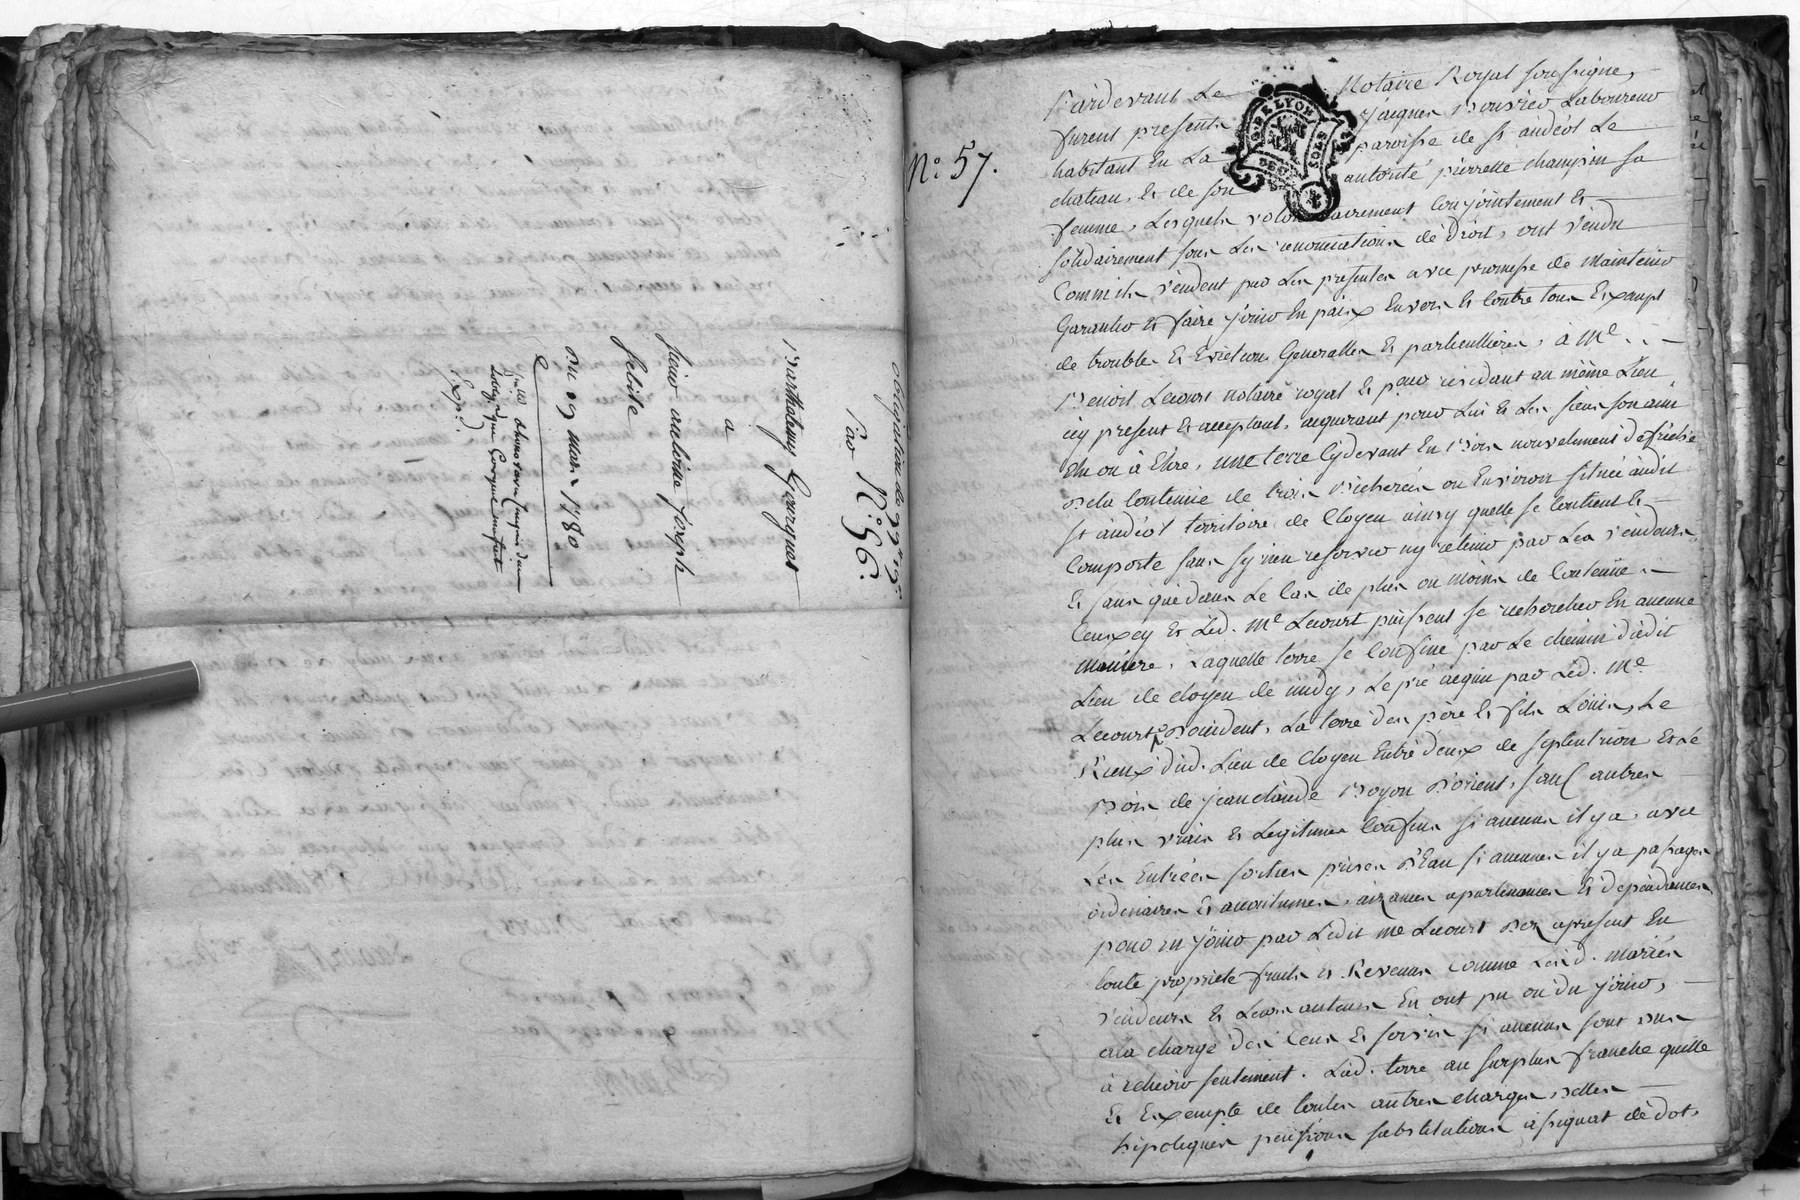 obligation de 297# 19s
N°. 56.
par
Barthelemy Gourgnot
a
sieur antoine joseph
febvre
Du 29 mars 1780
Exp.
N°. 57.
Pardevant Le Notaire Royal soussigné,
furent presents Jacques Bouvier Laboureur
habitant En La paroisse de st andéol Le
chateau, Et de son autorité pierrette champin sa
femme, Lesquels volontairement conjointement Et
solidairement sous Les renonciations de droit, ont vendu
Comm'ils vendent par Les presentes avec promesse de maintenir
Garantir Et faire joüir En paix Envers Et Contre tous Exempt
de troubles Et Evictions Generalles Et particullieres, à Me . . .
Benoit Lecourt notaire royal Et pour residant au même Lieu
icy present Et acceptant, acquerant pour Lui Et Les siens son ami
Elu ou à Elire, une terre Cydevant En Bois nouvelement defrichée
De la Contenüe de trois Bicherées ou Environ située audit
st andéol territoire de Cloyen ainsy quelle se Contient Et
Comporte sans sy rien reserver ny retenir par Les vendeurs,
Et sans que dans Le Cas de plus ou moins de Contenüe
Ceuxcy Et Led. Me Lecourt puissent se rechercher En aucune
maniere, Laquelle terre se Confine par Le chemin dudit
Lieu de cloyen de midy, Le pré acquis par Led. Me
Lecourt D'occident, La terre des père Et fils Loüis, Le
Rieux dud. Lieu de Cloyen Entre deux de septentrion Et Le
Bois de jean claude Boyon D'orient, sauf autres
plus vrais Et Legitimes Confins si aucuns il y a, avec
Les Entrées sorties prises D'Eau si aucunes il y a passages
ordinaires Et accoutumés, aizances apartenances Et dependances,
pour En joüir par Ledit me Lecourt Des apresent En
toute proprieté fruits Et Revenus Comme Lesd. mariés
vendeurs Et Leurs auteurs En ont pu ou du joüir,
ala charge des Cens Et servis si aucuns sont dus
à Echeoir seulement. Lad. terre au surplus franche quitte
Et Exempte de toutes autres charges, dettes
hipoteques pensions substitutions assignat de dot,